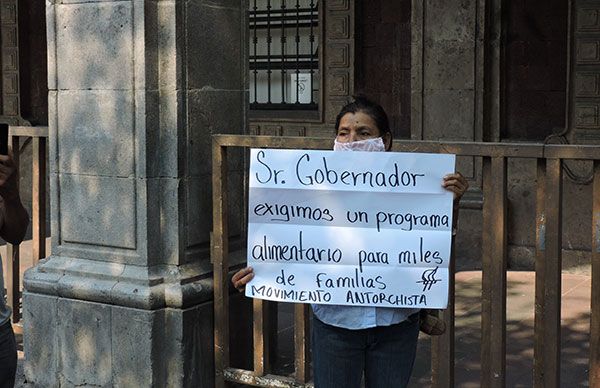 Sr. Gobernador
exigimos un programa
alimentario para miles
de familias
MOVIMIENTO ANTORCHISTA